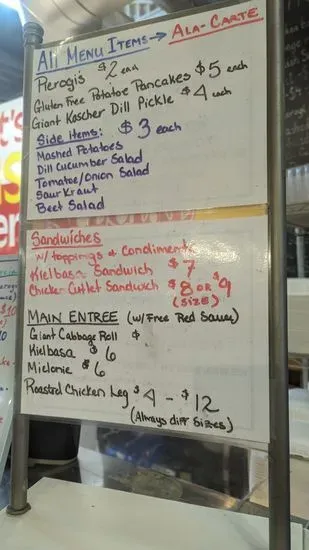 All Menu Items → Ala-Carte
Perogi's $2 ea
Gluten Free Potatoe Pancakes $5 each
Giant Koscher Dill Pickle $4 each
Side Items: $3 each
Mashed Potatoes
Dill Cucumber Salad
Tomatoe/Onion Salad
Saur Kraut
Beet Salad
Sandwiches
w/ toppings & Condiments
Kielbasa Sandwich $7
Chicken Cutlet Sandwich $8 or $9
(Size)
Main Entree (w/Free Red Sauce)
Giant Cabbage Roll $
Kielbasa $6
Mielonie $6
Roasted Chicken Leg $4 - $12
(Always diff Sizes)